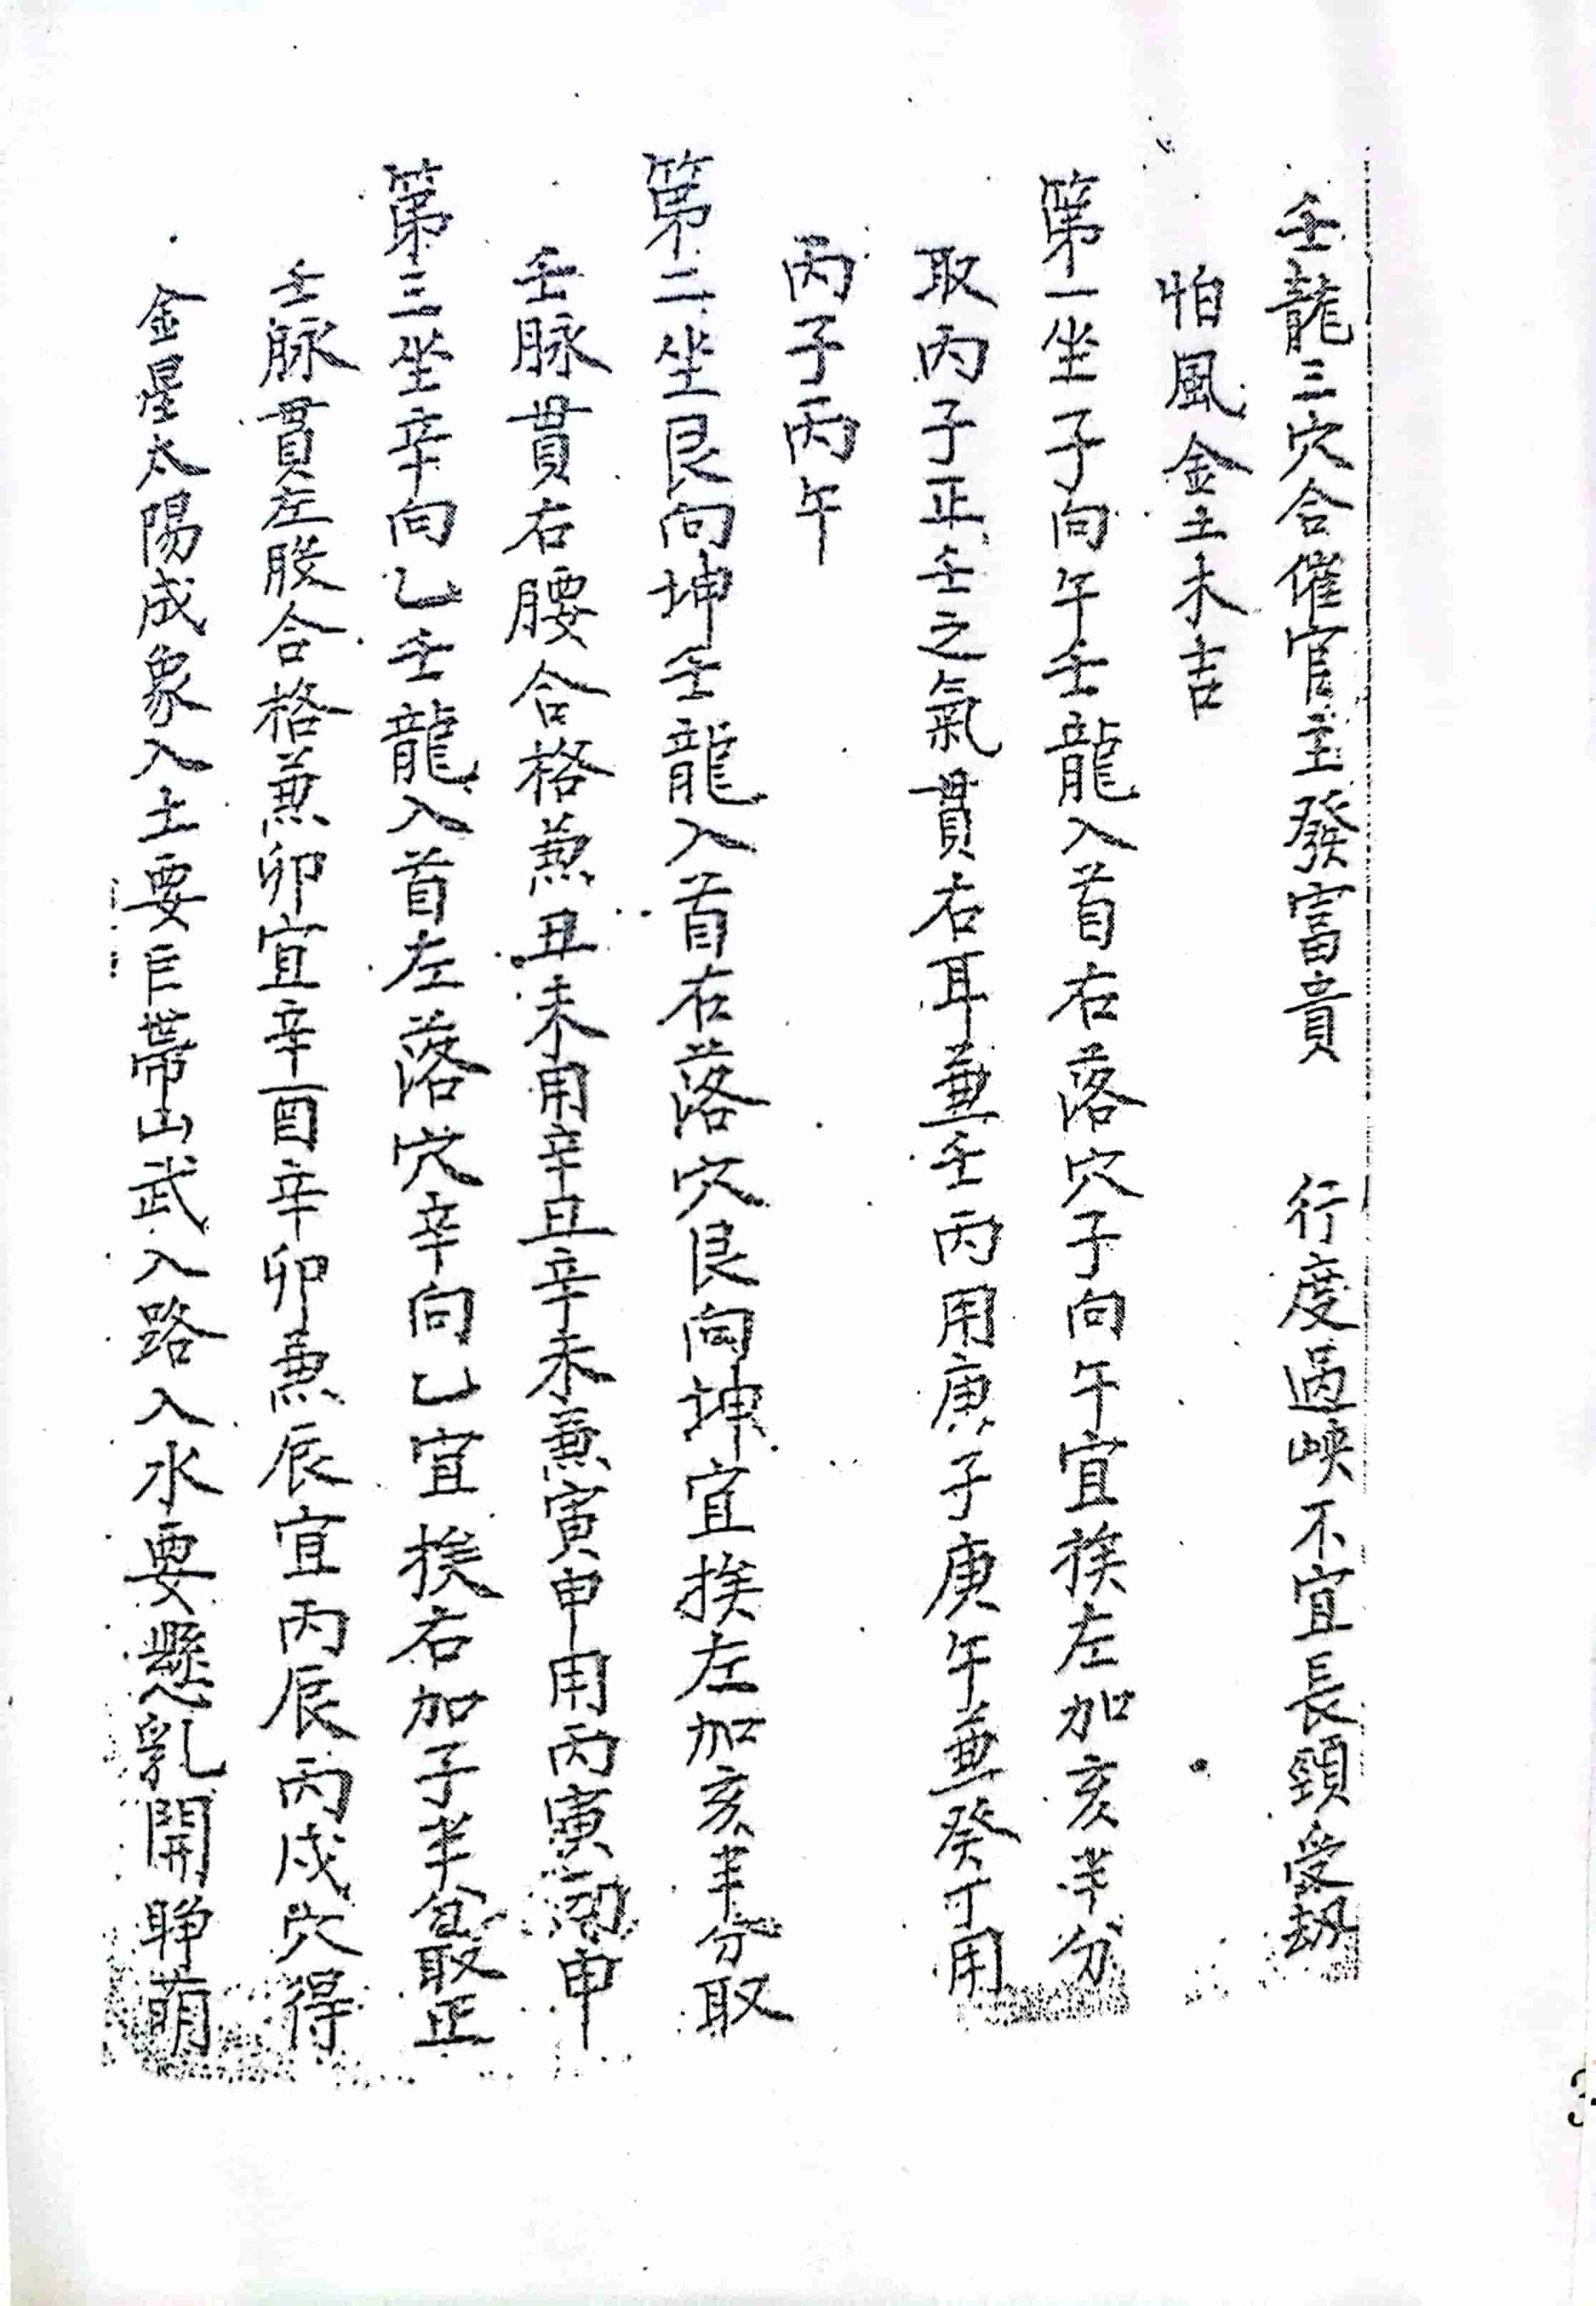 壬龍三穴合催官主發富貴　行度過峽不宜長頸受劫
怕風金土木吉
第一坐子向午壬龍入首右落穴子向午宜挨左加亥半分
取丙子正壬之氣貫右耳兼壬丙用庚子庚午兼癸丁用
丙子丙午
第二坐艮向坤壬龍入首右落穴艮向坤宜挨左加亥半分取
壬脉貫右腰合格兼丑未用辛丑辛未兼寅申用丙寅丙申
第三坐辛向乙壬龍入首左落穴辛向乙宜挨右加子半分取正
壬脉貫左股合格兼卯宜辛酉辛卯兼辰宜丙辰丙戌穴得
金星太陽成象入土要帶山武入路入水要懸乳開睜
3